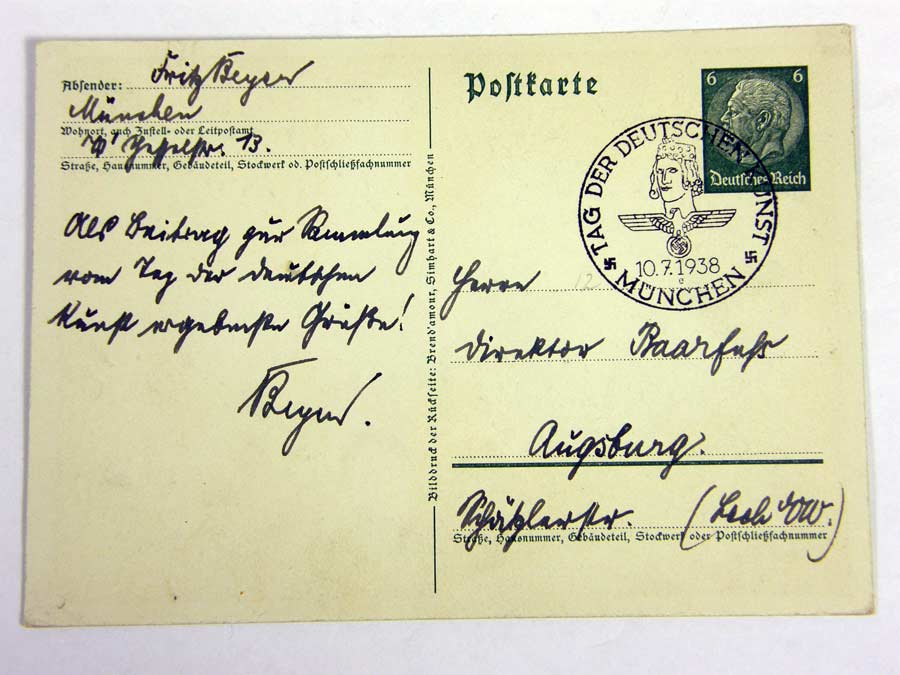 Absender: Fritz Beyer
München
Wohnort, auch Zustell- oder Leitpostamt
13.
Straße, Hausnummer, Gebäudeteil, Stockwerk od. Postschließfachnummer
Als Beitrag zur Sammlung
vom Tag der deutschen
Kunst ergebenste Grüße!
Beyer.
Bilddruck der Rückseite: Brend'amour, Simhart & Co., München
Postkarte
6 6
Deutsches Reich
TAG DER DEUTSCHEN KUNST
10.7.1938
e
MÜNCHEN
12
Herrn
Direktor
Augsburg.
Schätzlerstr.
Straße, Hausnummer, Gebäudeteil, Stockwerk oder Postschließfachnummer